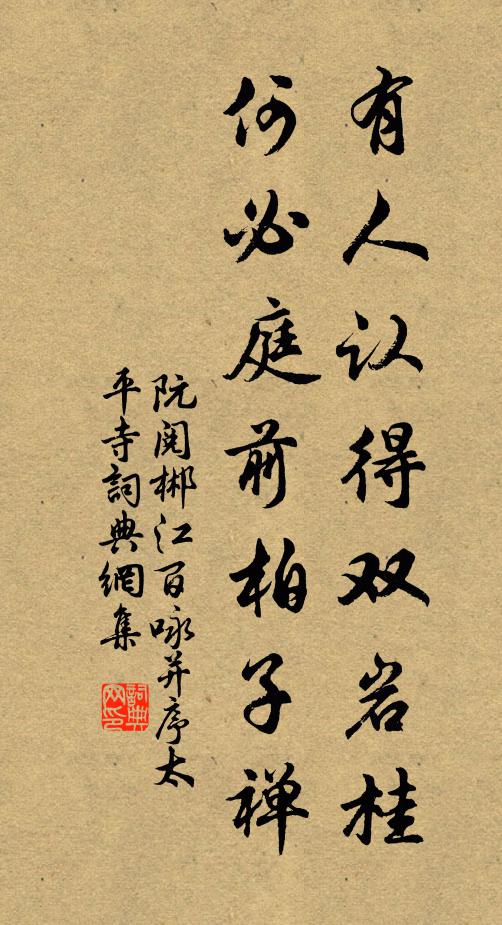 有人认得双岩桂
何必庭前柏子禅
阮阅郴江百咏并序太
平寺詞典網集
詞典网印